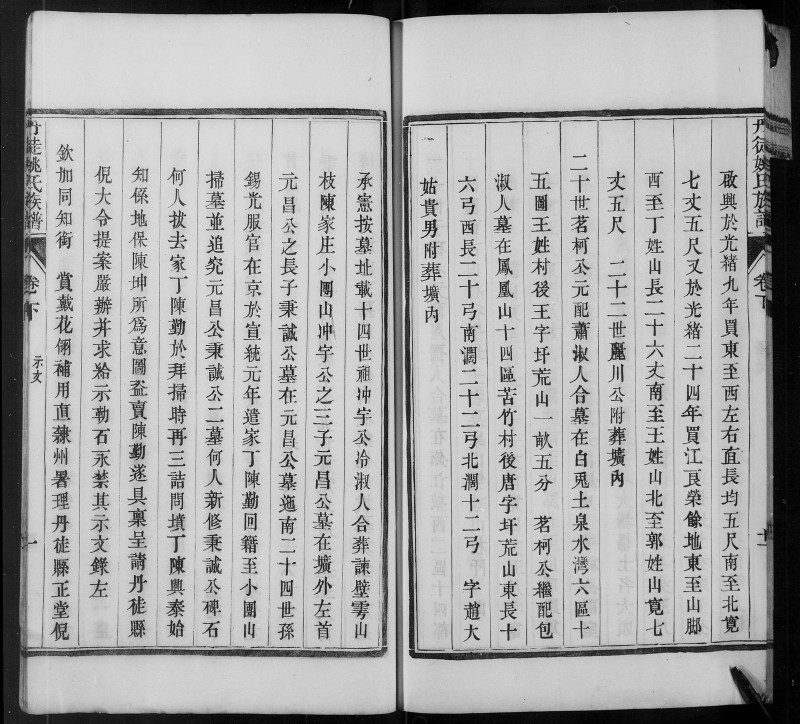 丹徒姚氏族譜
卷下
十
啟興於光緒九年買東至西左右直長均五尺南至北寬
七丈五尺又於光緒二十四年買江艮榮餘地東至山脚
西至丁姓山長二十六丈南至王姓山北至郭姓山寬七
丈五尺 二十二世麗川公附葬壙內
二十世茗柯公元配蕭淑人合墓在白兎土泉水灣六區十
五圖王姓村後王字圩荒山一畝五分 茗柯公繼配包
淑人墓在鳳凰山十四區苦竹村後唐字圩荒山東長十
六弓西長二十弓南濶二十二弓北濶十二弓 字趙大
姑貴男附葬壙內
承憲按墓址載十四世祖冲宇公冷淑人合葬諫壁雩山
枝陳家庄小團山冲宇公之三子元昌公墓在壙外左首
元昌公之長子秉誠公墓在元昌公墓迤南二十四世孫
錫光服官在京於宣統元年遣家丁陳勤回籍至小團山
掃墓並追究元昌公秉誠公二墓何人新修秉誠公碑石
何人拔去家丁陳勤於拜掃時再三詰問墳丁陳興泰始
知係地保陳坤所爲意圖盜賣陳勤遂具稟呈請丹徒縣
倪大令提案嚴辦并求給示勒石永禁其示文錄左
欽加同知銜 賞戴花翎補用直隸州署理丹徒縣正堂倪
丹徒姚氏族譜
卷下
示文